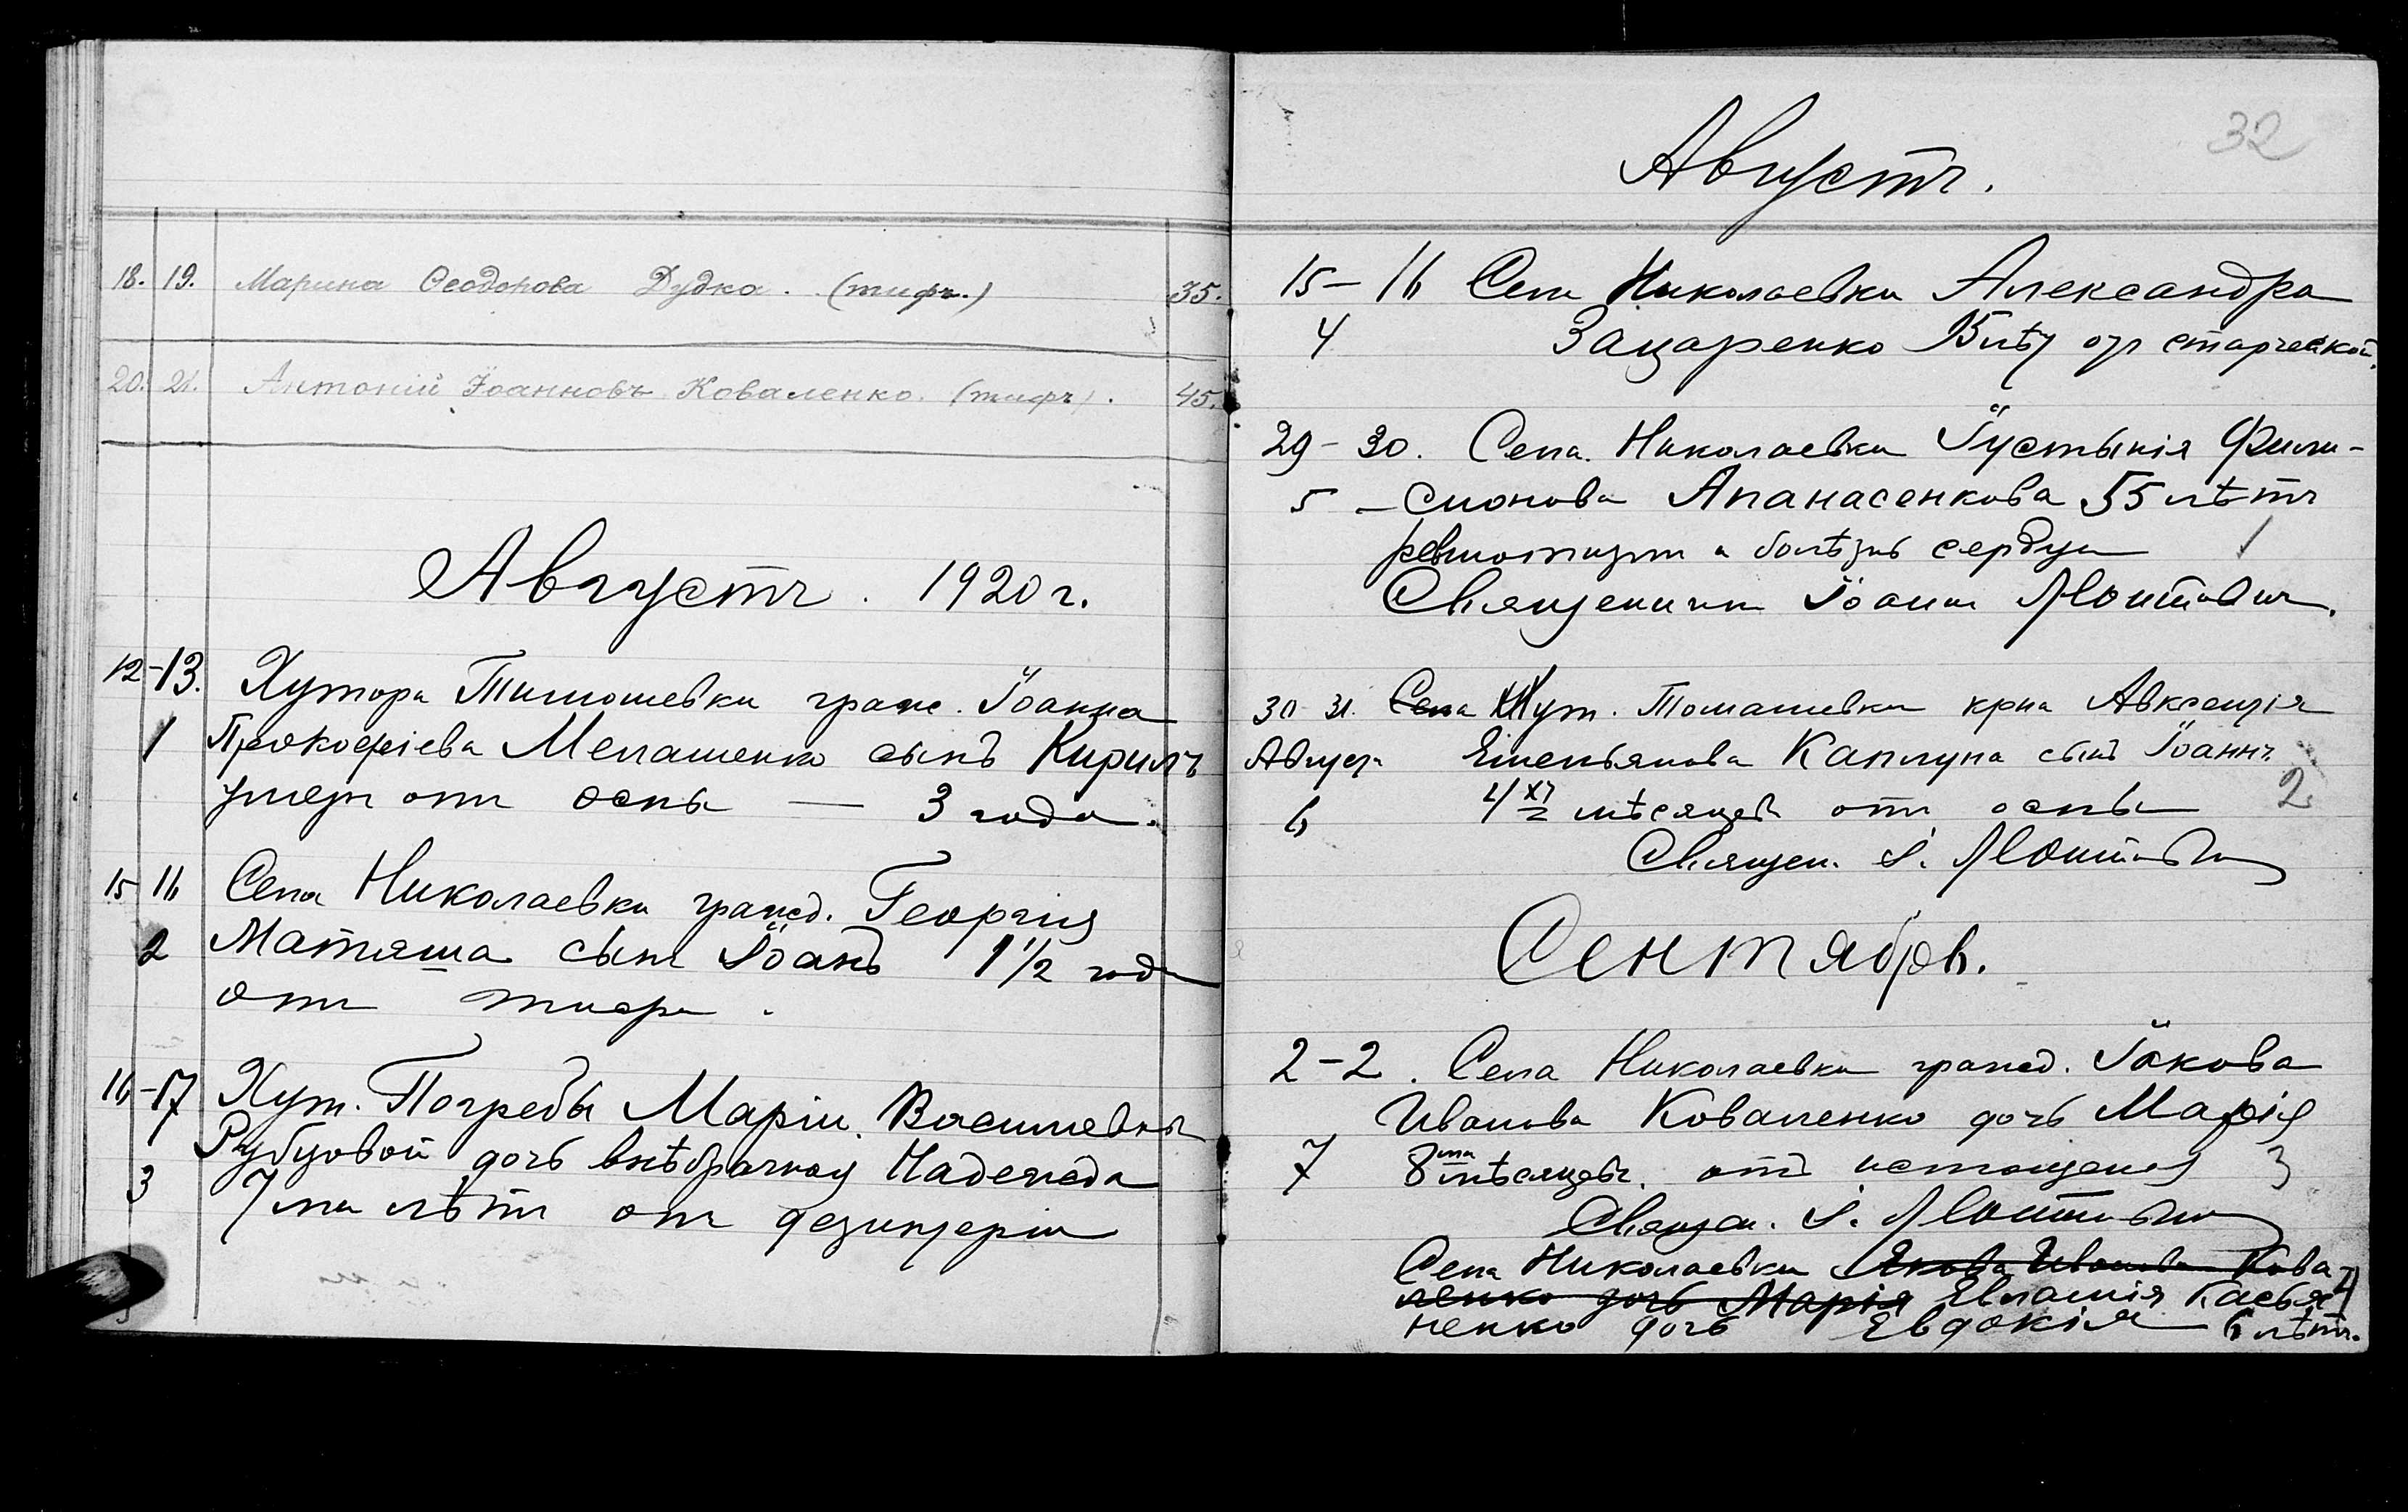 18. 19. Марина Ѳеодорова Дудка. (тифъ.) 35.
20. 21. Антоній Іоанновъ Коваленко. (тифъ). 45.
Августъ. 1920 г.
12-13. Хутора Тимошевки граж. Іоанна
1 Прокофіева Мелашенко сынъ Кирилъ
умеръ отъ оспы — 3 года.
15 16 Села Николаевки гражд. Георгія
2 Матяша сынъ Іоанъ 1 1/2 года
отъ тифа.
16-17 Хут. Погребы Маріи Василевны
Рубцовой дочь внѣбрачная Надежда
3 7 ми лѣтъ отъ дезинтеріи
32
Августъ.
15-16 Села Николаевки Александра
4 Зацаренко лѣтъ отъ старческой
29-30. Села Николаевки Іустынія Фили-
5 -симонова Апанасенкова 55 лѣтъ
ревматизм и болѣзнь сердца 1
Священникъ Іоаннъ
30 31. Села Хут. Томашевки крна Авксентія
Август Емельянова Каплуна сынъ Іоаннъ
6 4 хъ мѣсяцевъ отъ оспы 2
Священ. І.
Сентябрь.
2-2. Села Николаевки гражд. Іакова
Иванова Коваленко дочь Марія
7 8 ми мѣсяцевъ. отъ истощенія 3
Священ. І.
Села Николаевки Якова Иванова Кова- 4
ленко дочь Марія Евламія Касья-
ненко дочь Евдокія 6 лѣтъ.